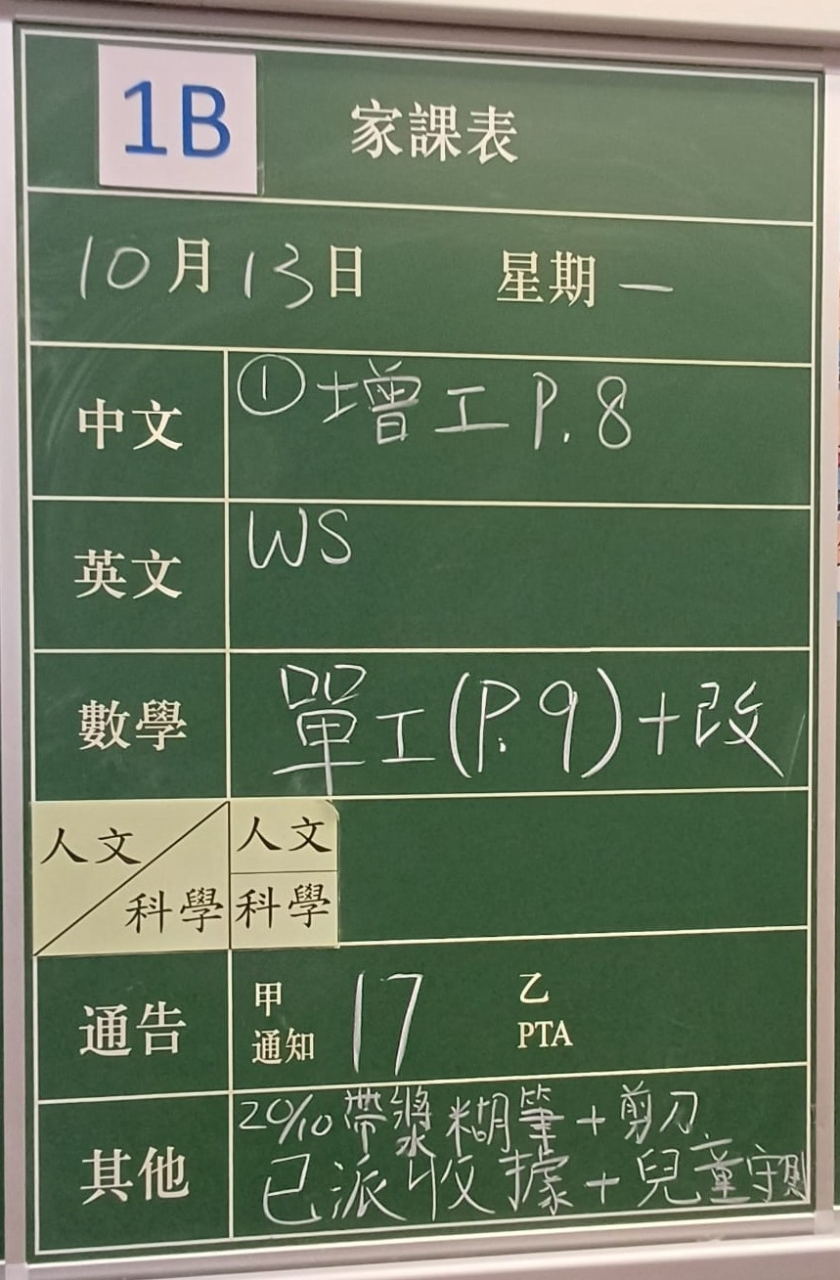 1B 家課表
10月13日 星期一
中文 ①增工 P.8
英文 WS
數學 單工(P.9)+改
人文 人文
科學 科學
通告 甲 17 乙
通知 PTA
其他 20/10 帶漿糊筆+剪刀
已派收據+兒童守則